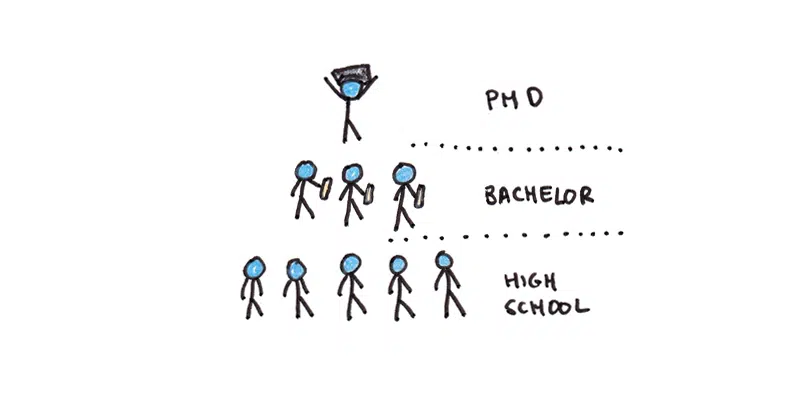 PHD
BACHELOR
HIGH
SCHOOL